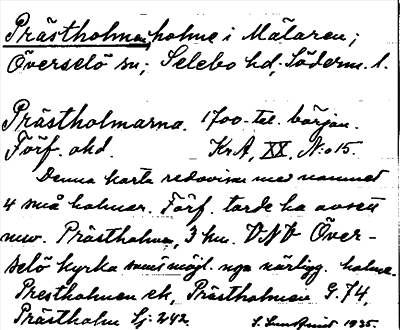 Prästholmen, holme i Mälaren;
Överselö sn; Selebo hd, Söderm. l.
Prästholmarna. 1700-tal. början.
Förf. okd. KrA, XX, N:o 15.
Denna karta redovisar med namnet
4 små holmar. Förf. torde ha avsett
nuv. Prästholmen, 3 km. VNV Över-
selö kyrka samt möjl. nga närligg. holmar.
Prestholmen ek, Prästholmen G. 74,
Prästholm Lj: 242. 1935.